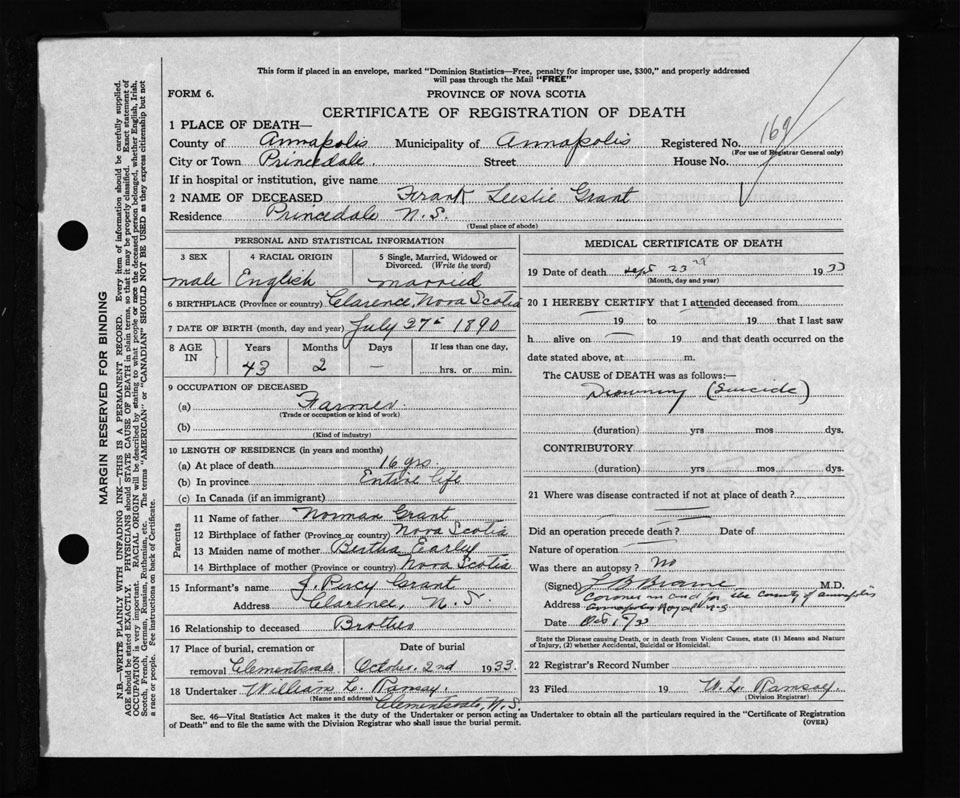 This form if placed in an envelope, marked "Dominion Statistics—Free, penalty for improper use, $300," and properly addressed
will pass through the Mail "FREE"
FORM 6.
PROVINCE OF NOVA SCOTIA
CERTIFICATE OF REGISTRATION OF DEATH
1 PLACE OF DEATH—
County of Annapolis Municipality of Annapolis Registered No. 169
(For use of Registrar General only)
City or Town Princedale. Street House No.
If in hospital or institution, give name
2 NAME OF DECEASED Frank Leslie Grant
Residence Princedale N.S.
(Usual place of abode)
PERSONAL AND STATISTICAL INFORMATION
3 SEX 4 RACIAL ORIGIN 5 Single, Married, Widowed or Divorced. (Write the word)
male English married
6 BIRTHPLACE (Province or country) Clarence, Nova Scotia
7 DATE OF BIRTH (month, day and year) July 27th 1890
8 AGE IN Years Months Days If less than one day,
43 2 — hrs. or min.
9 OCCUPATION OF DECEASED
(a) Farmer.
(Trade or occupation or kind of work)
(b)
(Kind of industry)
10 LENGTH OF RESIDENCE (in years and months)
(a) At place of death 16 yrs
(b) In province Entire life
(c) In Canada (if an immigrant)
Parents
11 Name of father Norman Grant
12 Birthplace of father (Province or country) Nova Scotia
13 Maiden name of mother Bertha Early
14 Birthplace of mother (Province or country) Nova Scotia
15 Informant's name J. Percy Grant
Address Clarence, N.S.
16 Relationship to deceased Brother
17 Place of burial, cremation or Date of burial
removal Clementsvale. October. 2nd 1933.
18 Undertaker William L. Ramsay.
(Name and address) Clementsvale, N.S.
MEDICAL CERTIFICATE OF DEATH
19 Date of death Sept 23rd 1933
(Month, day and year)
20 I HEREBY CERTIFY that I attended deceased from
19 to 19 that I last saw
h alive on 19 and that death occurred on the
date stated above, at m.
The CAUSE OF DEATH was as follows:—
Drowning (Suicide)
(duration) yrs mos dys.
CONTRIBUTORY
(duration) yrs mos dys.
21 Where was disease contracted if not at place of death?
Did an operation precede death? Date of
Nature of operation
Was there an autopsy? No
(Signed) M.D.
Coroner in and for the County of Annapolis
Address Annapolis Royal N.S.
Date Oct 1st/33
State the Disease causing Death, or in death from Violent Causes, state (1) Means and Nature
of Injury, (2) whether Accidental, Suicidal or Homicidal.
22 Registrar's Record Number
23 Filed 19 W. L. Ramsay
(Division Registrar)
Sec. 46—Vital Statistics Act makes it the duty of the Undertaker or person acting as Undertaker to obtain all the particulars required in the "Certificate of Registration
of Death" and to file the same with the Division Registrar who shall issue the burial permit.
(OVER)
MARGIN RESERVED FOR BINDING
N.B.—WRITE PLAINLY WITH UNFADING INK—THIS IS A PERMANENT RECORD. Every item of information should be carefully supplied.
AGE should be stated EXACTLY. PHYSICIANS should STATE CAUSE OF DEATH in plain terms, so that it may be properly classified. Exact statement of
OCCUPATION is very important. RACIAL ORIGIN will be described by stating to what people or race the deceased person belonged, whether English, Irish,
Scotch, French, German, Russian, Ruthenian, etc. The terms "AMERICAN" or "CANADIAN" SHOULD NOT BE USED as they express citizenship but not
a race or people. See instructions on back of Certificate.